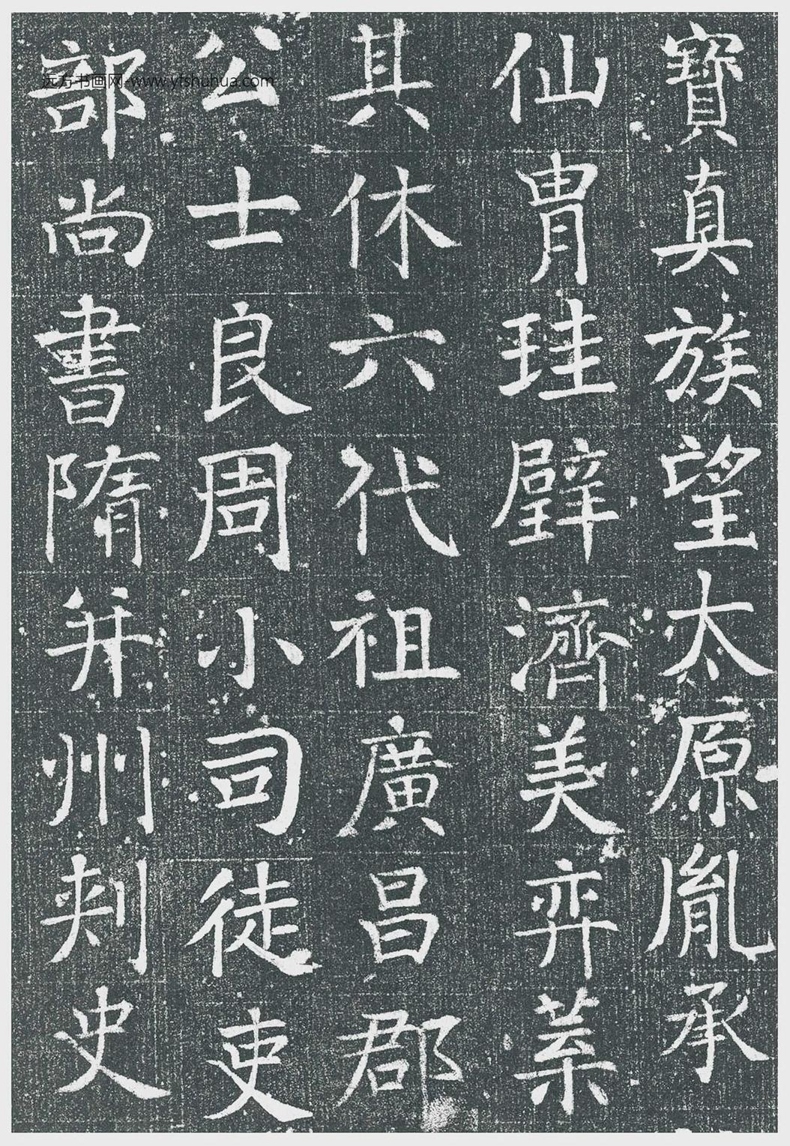 寶真族望太原胤承
仙胄珪璧濟美弈葉
其休六代祖廣昌郡
公士良周小司徒吏
部尚書隋并州刺史
远方书画网-www.yfshuhua.com